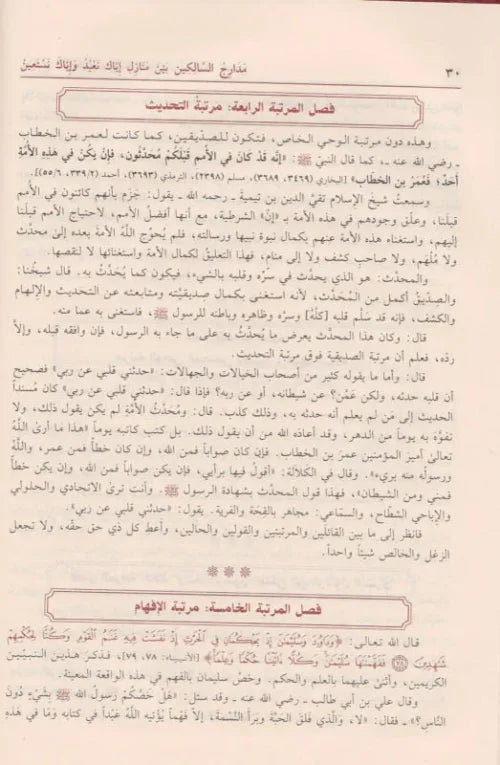 ٣٠
مَدَارِجُ السَّالِكِين بَيْنَ مَنَازِلِ إِيَّاكَ نَعْبُدُ وَإِيَّاكَ نَسْتَعِينُ
فصل المرتبة الرابعة: مرتبة التحديث
وهذه دون مرتبة الوحي الخاص، فتكون للصديقين، كما كانت لعمر بن الخطاب
ـ رضي الله عنه ـ، كما قال النبيّ ﷺ: «إِنَّه قَدْ كَانَ في الأُمم قَبْلَكُمْ مُحَدَّثون، فَإنْ يكُنْ في هذِهِ الأُمَّةِ
أَحَدٌ؛ فَعُمَرُ بن الخطاب» [البخاري (٣٤٦٩، ٣٦٨٩)، مسلم (٢٣٩٨)، الترمذي (٣٦٩٣)، أحمد (٣٣٩/٢، ٥٥/٦)].
وسمعتُ شيخ الإسلام تقيَّ الدين بن تيمية ـ رحمه الله ـ يقول: جَزَم بأنهم كائنون في الأمم
قبلَنا، وعلَّق وجودهم في هذه الأمة بـ «إنْ» الشرطية، مع أنها أفضلُ الأمم، لاحتياج الأمم قبلنا
إليهم، واستغناءِ هذه الأمة عنهم بكمال نبوة نبيها ورسالته، فلم يُحوِجِ اللَّهُ الأمةَ بعده إلى محدَّث
ولا مُلْهَم، ولا صاحبِ كشف ولا إلى منام، فهذا التعليقُ لكمال الأمة واستغنائها لا لنقصها.
والمحدَّث: هو الذي يحدَّث في سرّه وقلبه بالشيء، فيكون كما يُحَدَّثُ به. قال شيخُنا:
والصِدّيقُ أكمل من المُحَدَّث، لأنه استغنى بكمال صِدِّيقيَّته ومتابعته عن التحديث والإلهام
والكشف، فإنه قد سَلَّم قلبه [كلَّهُ] وسرَّه وظاهره وباطنه للرسول ﷺ، فاستغنى به عما منه.
قال: وكان هذا المحدَّث يعرض ما يُحَدَّثُ به على ما جاء به الرسول، فإن وافقه قَبِله، وإلاَّ
ردَّه، فعلم أن مرتبة الصديقية فوق مرتبة التحديث.
قال: وأما ما يقوله كثير من أصحاب الخيالات والجهالات: «حدثني قلبي عن ربي» فصحيح
أن قلبه حدثه، ولكن عَمَّنْ؟ عن شيطانه، أو عن ربه؟ فإذا قال: «حدثني قلبي عن ربي» كان مُسنداً
الحديث إلى مَن لم يعلم أنه حدثه به، وذلك كذب. قال: ومُحَدَّثُ الأمَّةِ لم يكن يقول ذلك، ولا
تفوَّه به يوماً من الدهر، وقد أعاذه الله من أن يقول ذلك. بل كتب كاتبه يوماً «هذا مَا أرَى اللَّهُ
تعالىٰ أميرَ المؤمنين عمرَ بن الخطاب. فقال: لا، امحُه، واكتب: هذا ما رأىٰ عمر بن الخطاب. فإن كان صواباً فمن الله، وإن كان خطأً فمن عمر، واللَّهُ
ورسولُه منه بريء». وقال في الكلالة: «أقولُ فيها برأيي، فإن يكن صواباً فمن الله، وإن يكن خطأً
فمني ومن الشيطان»، فهذا قول المحدَّث بشهادة الرسول ﷺ. وأنت ترىٰ الاتحادي والحلولي
والإباحي الشطَّاح، والسماعي: مجاهر بالقِحَة والفرية. يقول: «حدثني قلبي عن ربي».
فانظر إلى ما بين القائلَين والمرتبتين والقولين والحالين، وأعطِ كل ذي حق حقه، ولا تجعل
الزغل والخالص شيئاً واحداً.
* * *
فصل المرتبة الخامسة: مرتبة الإفهام
قال الله تعالى: ﴿وَدَاوُۥدَ وَسُلَيْمَٰنَ إِذْ يَحْكُمَانِ فِى ٱلْحَرْثِ إِذْ نَفَشَتْ فِيهِ غَنَمُ ٱلْقَوْمِ وَكُنَّا لِحُكْمِهِمْ
شَٰهِدِينَ ۝ فَفَهَّمْنَٰهَا سُلَيْمَٰنَ وَكُلًّا ءَاتَيْنَا حُكْمًا وَعِلْمًا﴾ [الأنبياء: ٧٨، ٧٩]، فذكرَ هذَين النبيَّين
الكريمين، وأثنىٰ عليهما بالعلم والحكم. وخصَّ سليمان بالفهم في هذه الواقعة المعيَّنة.
وقال علي بن أبي طالب ـ رضي الله عنه ـ وقد سئل: «هَلْ خَصَّكُمْ رَسولُ اللَّهِ ﷺ بِشَيْءٍ دُونَ
النَّاسِ؟» ـ فقال: «لا، وَالَّذي فَلقَ الحَبَّةَ وَبَرأَ النَّسْمَةَ، إلاَّ فَهْماً يُؤتيه اللَّهُ عَبْداً في كتابه وَمَا في هٰذِهِ